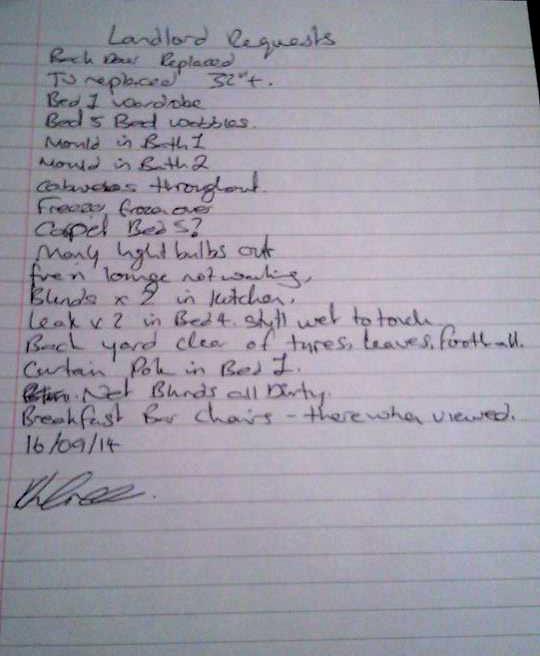 Landlord Requests
Back Door Replaced
TV replaced 32"+.
Bed 1 wardrobe
Bed 5 Bed wobbles.
Mould in Bath 1
Mould in Bath 2
cobwebs throughout.
Freezer frozen over
Carpet Bed 5?
Many lightbulbs out
in lounge not working,
Blinds x 2 in kitchen,
Leak x 2 in Bed 4. still wet to touch
Back yard clear of tyres, leaves, football.
Curtain Pole in Bed 1.
Net Blinds all Dirty
Breakfast Bar Chairs - there when viewed.
16/09/14